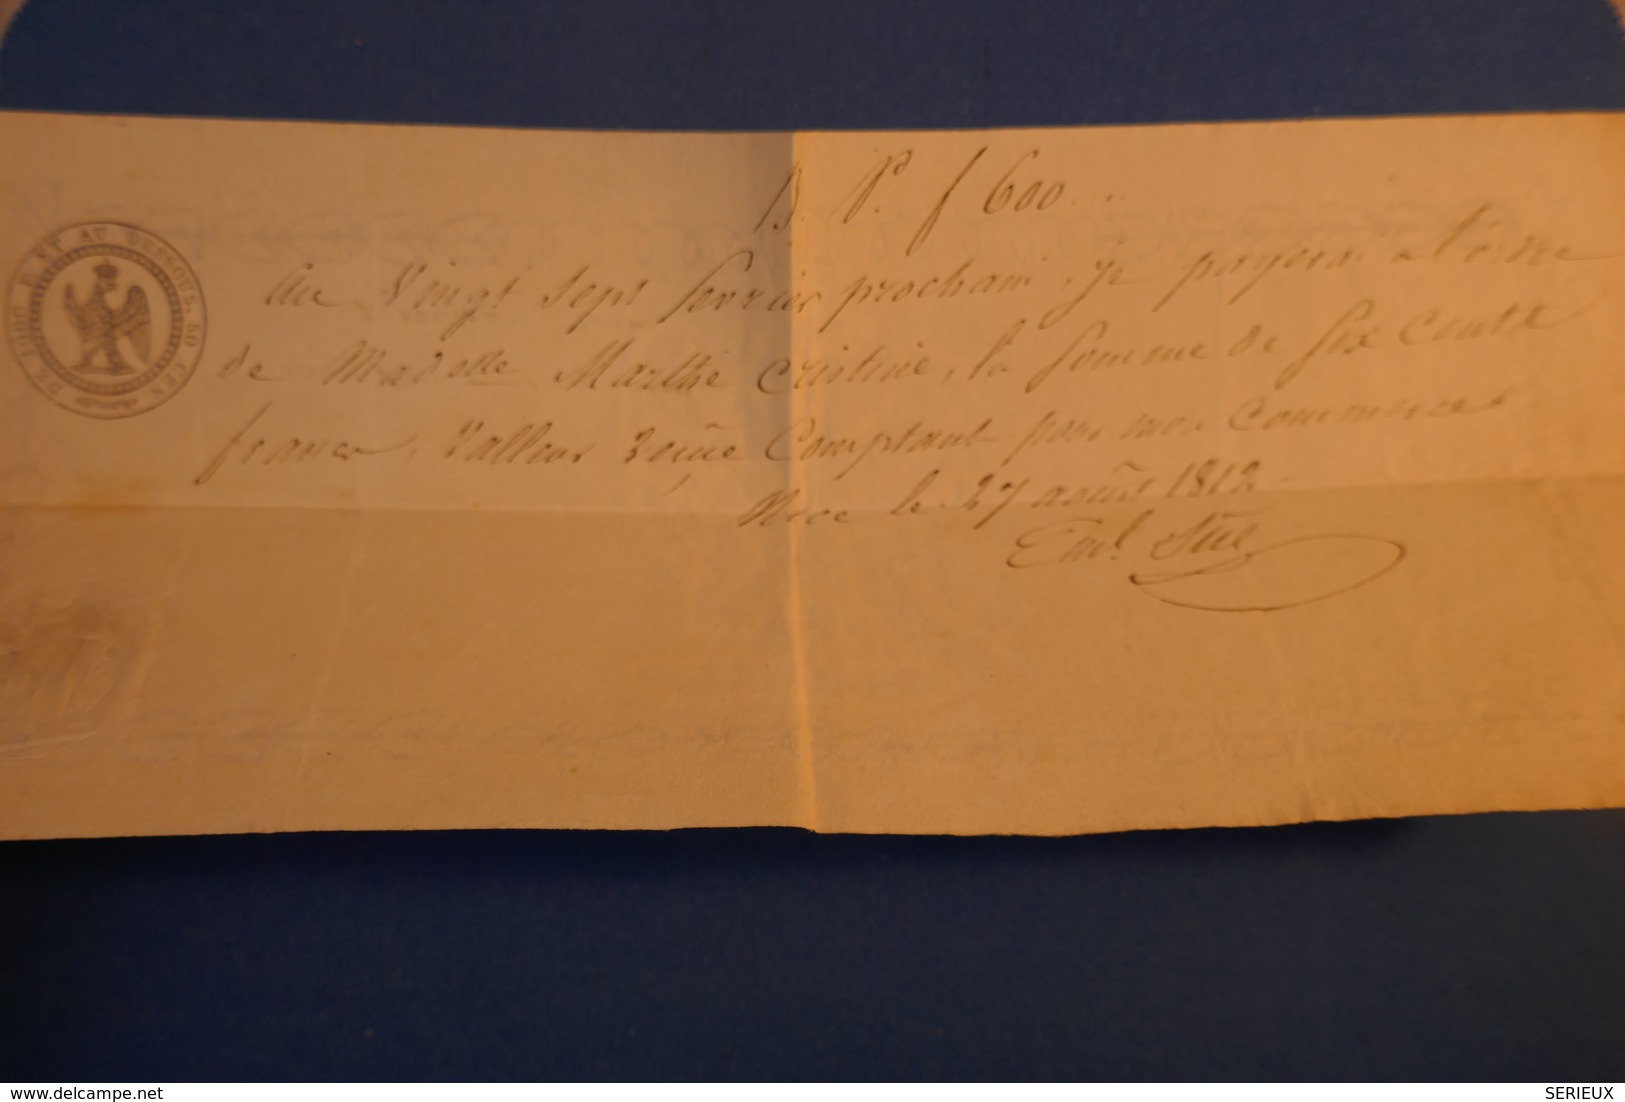 B. P. f 600
DE 1000 F. ET AU DESSOUS. 50 CEN
Au vingt sept fevrier prochain, je payerai a l'ordre
de Madelle Marthe Cristine, la somme de six centt
francs, valleur reçue comptant pour mon commerce
Nice le 27 août 1812
Eml. Süe
delcampe.net
SERIEUX